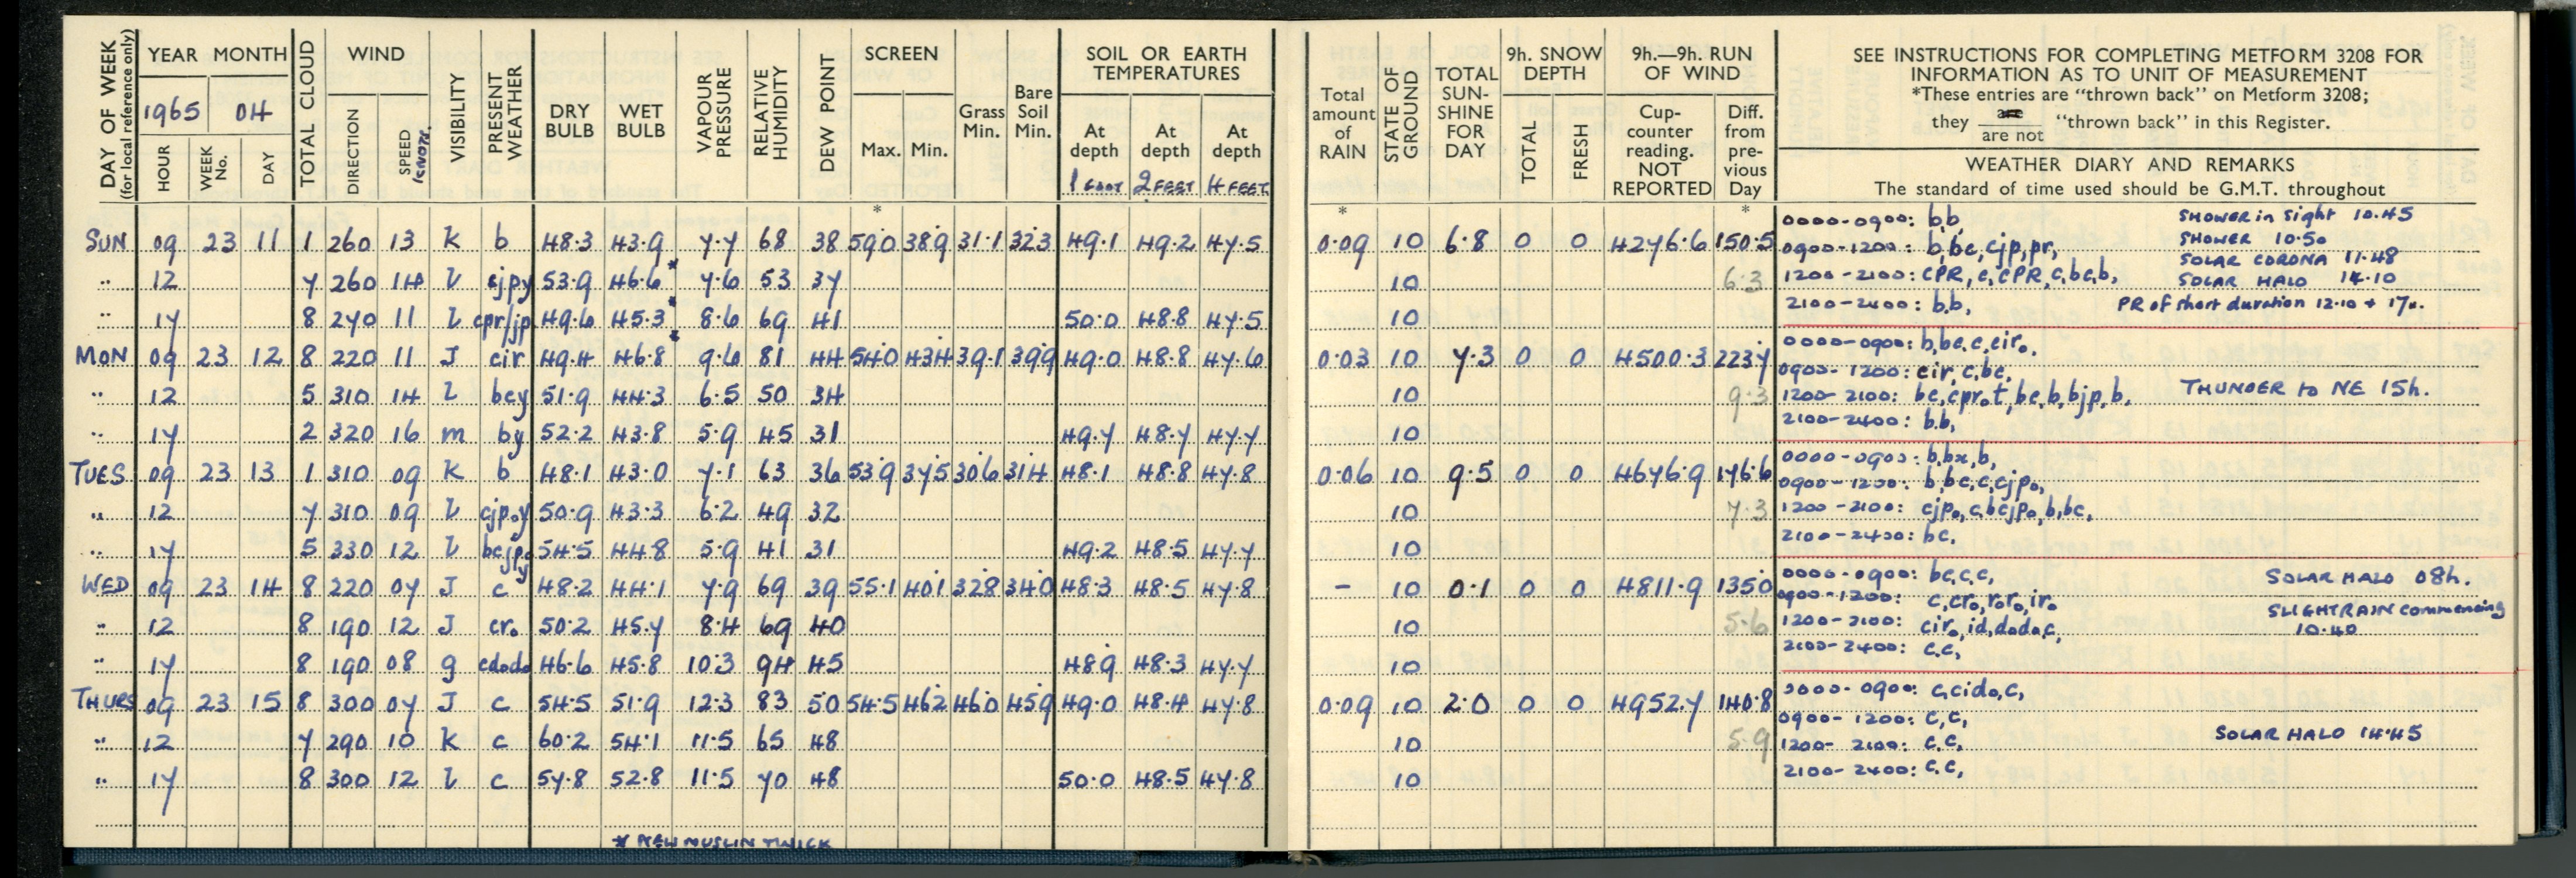 DAY OF WEEK (for local reference only) YEAR MONTH TOTAL CLOUD WIND VISIBILITY PRESENT WEATHER DRY BULB WET BULB VAPOUR PRESSURE RELATIVE HUMIDITY DEW POINT SCREEN Grass Min. Bare Soil Min. SOIL OR EARTH TEMPERATURES
1965 04
HOUR WEEK No. DAY DIRECTION SPEED KNOTS. Max. Min. At depth At depth At depth
1 FOOT 2 FEET 4 FEET
Total amount of RAIN STATE OF GROUND TOTAL SUN-SHINE FOR DAY 9h. SNOW DEPTH 9h.—9h. RUN OF WIND
TOTAL FRESH Cup-counter reading. NOT REPORTED Diff. from pre-vious Day
SEE INSTRUCTIONS FOR COMPLETING METFORM 3208 FOR
INFORMATION AS TO UNIT OF MEASUREMENT
*These entries are "thrown back" on Metform 3208;
they are / are not "thrown back" in this Register.
WEATHER DIARY AND REMARKS
The standard of time used should be G.M.T. throughout
* * *
SUN 09 23 11 1 260 13 K b 48.3 43.9 7.7 68 38 59.0 38.9 31.1 32.3 49.1 49.2 47.5 0.09 10 6.8 0 0 4276.6 150.5
" 12 7 260 14 l cjpy 53.9 46.6* 7.6 53 37 10 6.3
" 17 8 270 11 l cpr/jp 49.6 45.3* 8.6 69 41 50.0 48.8 47.5 10
MON 09 23 12 8 220 11 J cir 49.4 46.8* 9.6 81 44 54.0 43.4 39.1 39.9 49.0 48.8 47.6 0.03 10 7.3 0 0 4500.3 223.7
" 12 5 310 14 l bcy 51.9 44.3 6.5 50 34 10 9.3
" 17 2 320 16 m by 52.2 43.8 5.9 45 31 49.7 48.7 47.7 10
TUES 09 23 13 1 310 09 K b 48.1 43.0 7.1 63 36 53.9 37.5 30.6 31.4 48.1 48.8 47.8 0.06 10 9.5 0 0 4676.9 176.6
" 12 7 310 09 l cjpoy 50.9 43.3 6.2 49 32 10 7.3
" 17 5 330 12 l bcjpoy 54.5 44.8 5.9 41 31 49.2 48.5 47.7 10
WED 09 23 14 8 220 07 J c 48.2 44.1 7.9 69 39 55.1 40.1 32.8 34.0 48.3 48.5 47.8 - 10 0.1 0 0 4811.9 135.0
" 12 8 190 12 J cro 50.2 45.7 8.4 69 40 10 5.6
" 17 8 190 08 g cdodo 46.6 45.8 10.3 94 45 48.9 48.3 47.7 10
THURS 09 23 15 8 300 07 J c 54.5 51.9 12.3 83 50 54.5 46.2 46.0 45.9 49.0 48.4 47.8 0.09 10 2.0 0 0 4952.7 140.8
" 12 7 290 10 K c 60.2 54.1 11.5 65 48 10 5.9
" 17 8 300 12 l c 57.8 52.8 11.5 70 48 50.0 48.5 47.8 10
* NEW MUSLIN + WICK
0000-0900: b,b, SHOWER in sight 10.45
0900-1200: b,bc,cjp,pr, SHOWER 10.50
SOLAR CORONA 11.48
1200-2100: cPR,c,cPR,c,bc,b, SOLAR HALO 14.10
2100-2400: b,b, PR of short duration 12.10 +
0000-0900: b,bc,c,ciro,
0900-1200: cir,c,bc,
1200-2100: bc,cprot,bc,b,bjp,b, THUNDER to NE 15h.
2100-2400: b,b,
0000-0900: b,bx,b,
0900-1200: b,bc,c,cjpo,
1200-2100: cjpo,c,bcjpo,b,bc,
2100-2400: bc,
0000-0900: bc,c,c, SOLAR HALO 08h.
0900-1200: c,cro,roro,iro SLIGHT RAIN commencing
1200-2100: ciro,id,dodo,c, 10.40
2100-2400: c,c,
0000-0900: c,cido,c,
0900-1200: c,c,
1200-2100: c,c, SOLAR HALO 14.45
2100-2400: c,c,